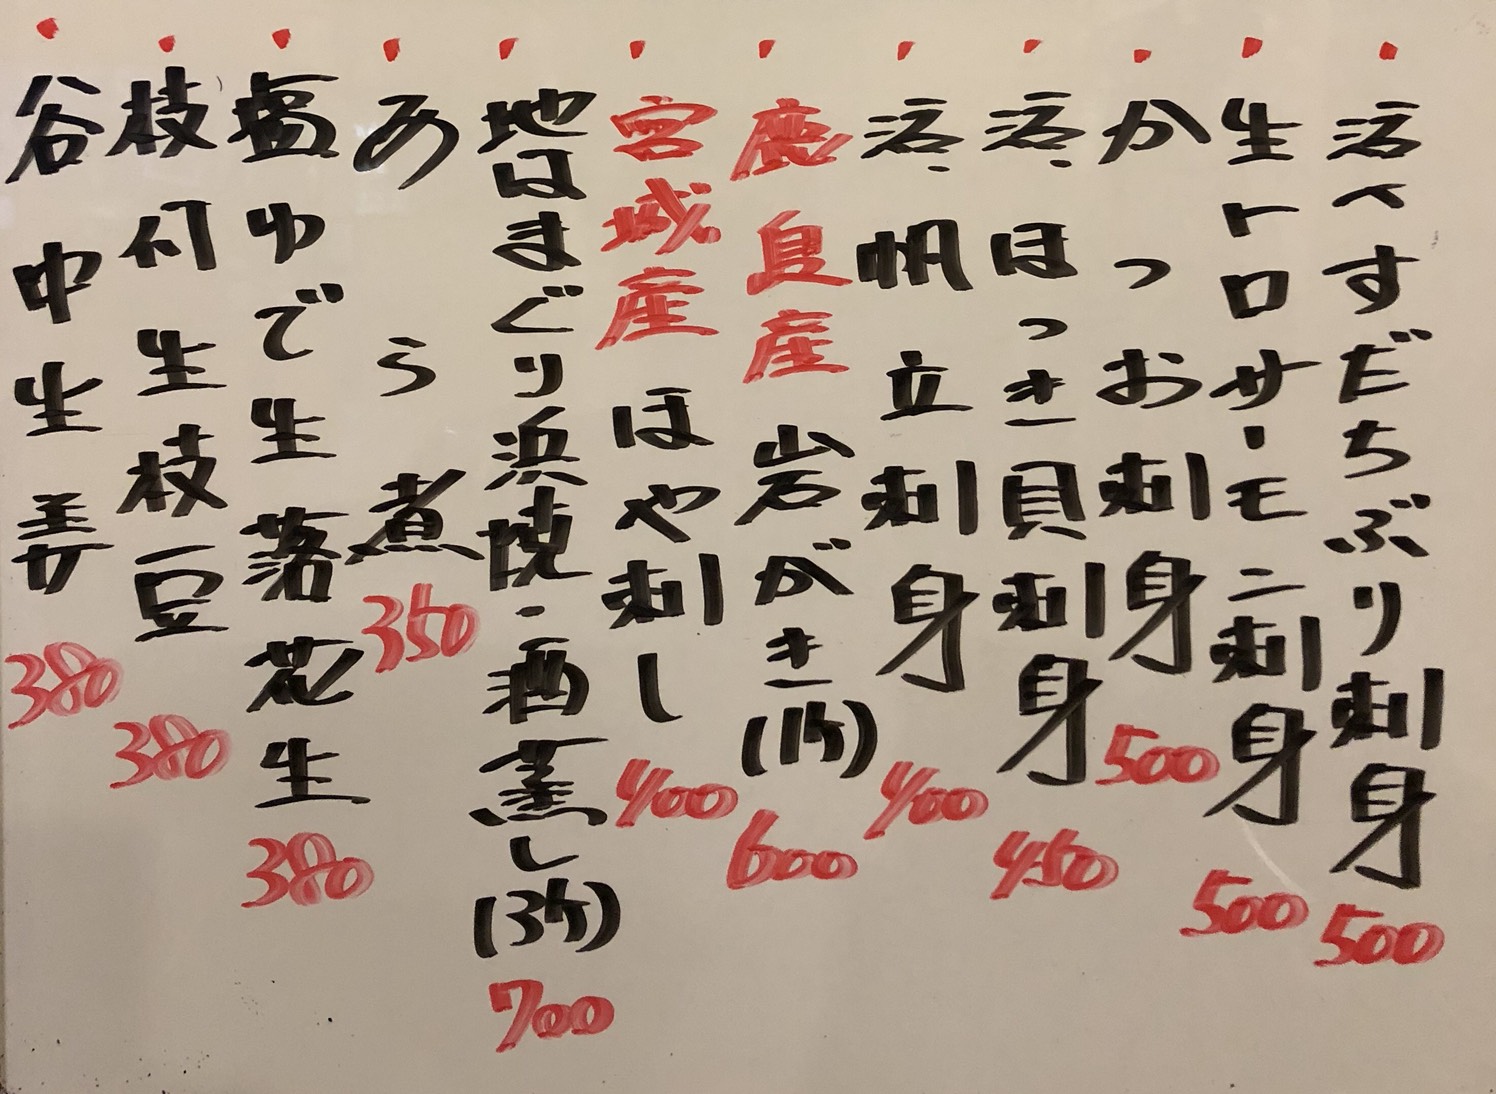 活〆すだちぶり刺身 500
生トロサーモン刺身 500
かつお刺身 500
活ほっき貝刺身 450
活帆立刺身 400
鹿島産岩がき(1ケ) 600
宮城産ほや刺し 400
地はまぐり浜焼・酒蒸し(3ケ) 700
あら煮 350
塩ゆで生落花生 380
枝付生枝豆 380
谷中生姜 380